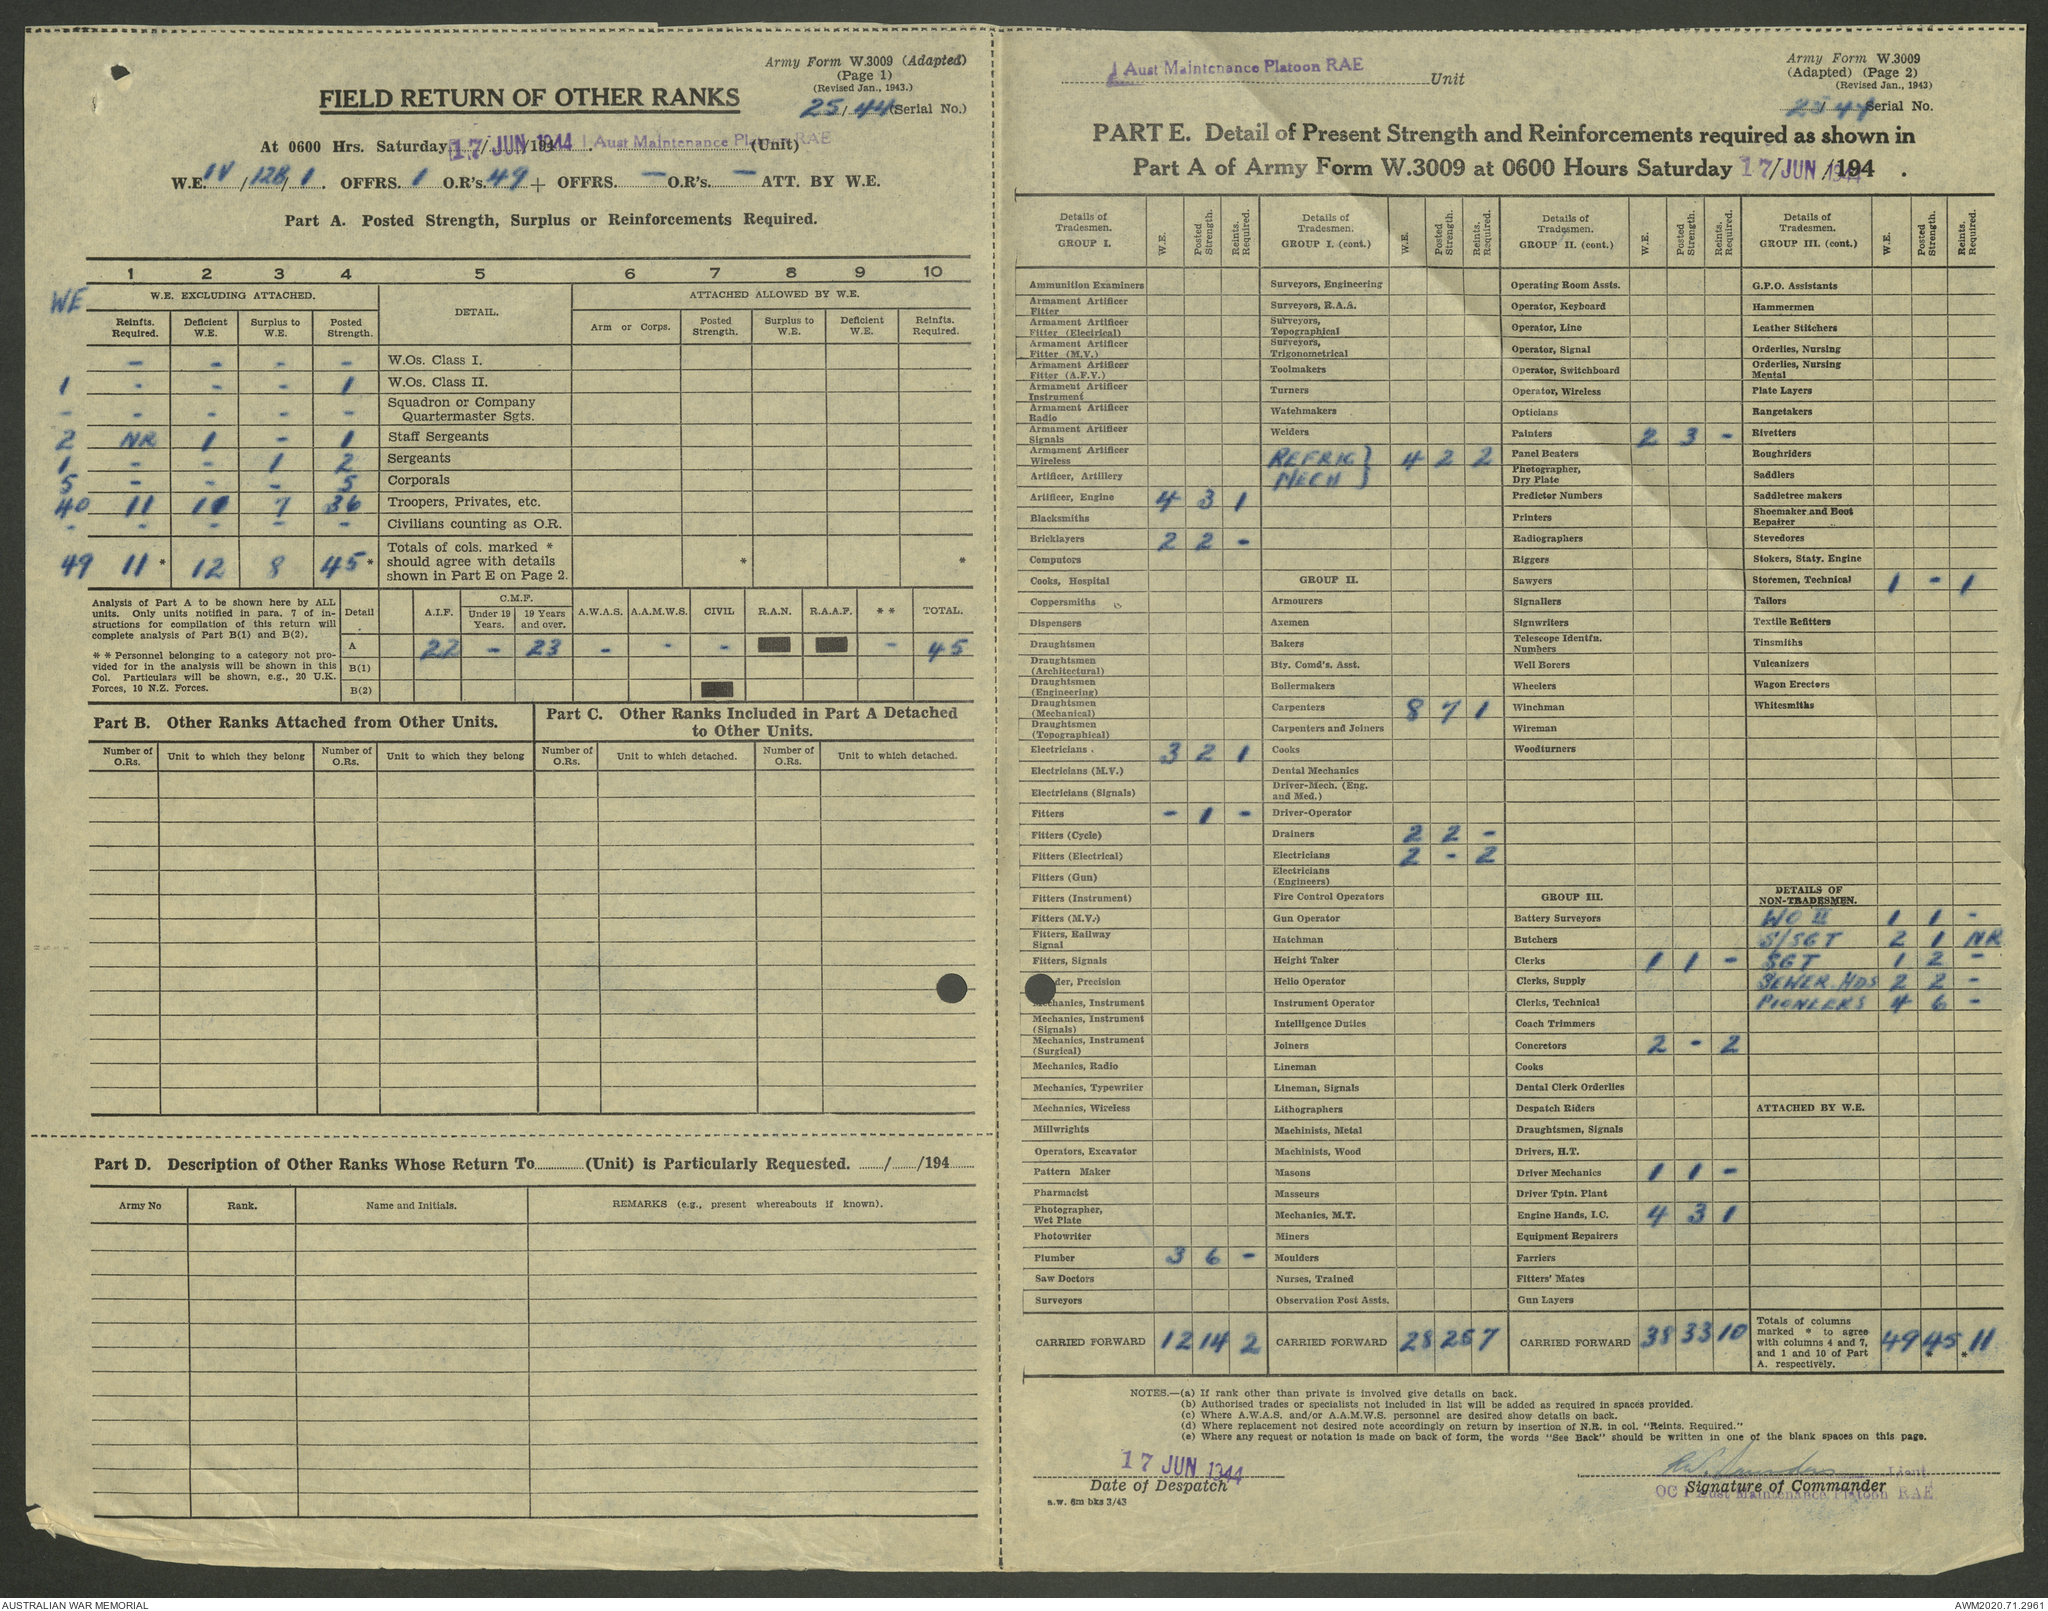 Army Form W.3009 (Adapted)
(Page 1)
(Revised Jan., 1943.)
25/44 (Serial No.)
FIELD RETURN OF OTHER RANKS
At 0600 Hrs. Saturday 17 JUN 1944 1 Aust Maintenance Platoon RAE (Unit)
W.E. IV/12B/1. OFFRS. 1 O.R's. 49 + OFFRS. - O.R's. - ATT. BY W.E.
Part A. Posted Strength, Surplus or Reinforcements Required.
1 2 3 4 5 6 7 8 9 10
WE
W.E. EXCLUDING ATTACHED. DETAIL. ATTACHED ALLOWED BY W.E.
Reinfts. Required. Deficient W.E. Surplus to W.E. Posted Strength. Arm or Corps. Posted Strength. Surplus to W.E. Deficient W.E. Reinfts. Required.
- - - - W.Os. Class I.
1 - - - 1 W.Os. Class II.
- - - - - Squadron or Company Quartermaster Sgts.
2 NR 1 - 1 Staff Sergeants
1 - - 1 2 Sergeants
5 - - - 5 Corporals
40 11 11 7 36 Troopers, Privates, etc.
- - - - - Civilians counting as O.R.
49 11 * 12 8 45 * Totals of cols. marked * should agree with details shown in Part E on Page 2. * *
Analysis of Part A to be shown here by ALL
units. Only units notified in para. 7 of in-
structions for compilation of this return will
complete analysis of Part B(1) and B(2).
* * Personnel belonging to a category not pro-
vided for in the analysis will be shown in this
Col. Particulars will be shown, e.g., 20 U.K.
Forces, 10 N.Z. Forces.
Detail A.I.F. C.M.F. Under 19 Years. 19 Years and over. A.W.A.S. A.A.M.W.S. CIVIL R.A.N. R.A.A.F. * * TOTAL.
A 22 - 23 - - - - 45
B(1)
B(2)
Part B. Other Ranks Attached from Other Units.
Part C. Other Ranks Included in Part A Detached
to Other Units.
Number of O.Rs. Unit to which they belong Number of O.Rs. Unit to which they belong Number of O.Rs. Unit to which detached. Number of O.Rs. Unit to which detached.
Part D. Description of Other Ranks Whose Return To............(Unit) is Particularly Requested. ....../....../194......
Army No Rank. Name and Initials. REMARKS (e.g., present whereabouts if known).
1 Aust Maintenance Platoon RAE Unit
Army Form W.3009
(Adapted) (Page 2)
(Revised Jan., 1943)
25/44 Serial No.
PART E. Detail of Present Strength and Reinforcements required as shown in
Part A of Army Form W.3009 at 0600 Hours Saturday 17/JUN/1944.
Details of Tradesmen. GROUP I. W.E. Posted Strength. Reints. Required.
Ammunition Examiners
Armament Artificer Fitter
Armament Artificer Fitter (Electrical)
Armament Artificer Fitter (M.V.)
Armament Artificer Fitter (A.F.V.)
Armament Artificer Instrument
Armament Artificer Radio
Armament Artificer Signals
Armament Artificer Wireless
Artificer, Artillery
Artificer, Engine 4 3 1
Blacksmiths
Bricklayers 2 2 -
Computors
Cooks, Hospital
Coppersmiths
Dispensers
Draughtsmen
Draughtsmen (Architectural)
Draughtsmen (Engineering)
Draughtsmen (Mechanical)
Draughtsmen (Topographical)
Electricians 3 2 1
Electricians (M.V.)
Electricians (Signals)
Fitters - 1 -
Fitters (Cycle)
Fitters (Electrical)
Fitters (Gun)
Fitters (Instrument)
Fitters (M.V.)
Fitters, Railway Signal
Fitters, Signals
der, Precision
Mechanics, Instrument
Mechanics, Instrument (Signals)
Mechanics, Instrument (Surgical)
Mechanics, Radio
Mechanics, Typewriter
Mechanics, Wireless
Millwrights
Operators, Excavator
Pattern Maker
Pharmacist
Photographer, Wet Plate
Photowriter
Plumber 3 6 -
Saw Doctors
Surveyors
CARRIED FORWARD 12 14 2
Details of Tradesmen. GROUP I. (cont.) W.E. Posted Strength. Reints. Required.
Surveyors, Engineering
Surveyors, R.A.A.
Surveyors, Topographical
Surveyors, Trigonometrical
Toolmakers
Turners
Watchmakers
Welders
REFRIG MECH } 4 2 2
GROUP II.
Armourers
Axemen
Bakers
Bty. Comd's. Asst.
Boilermakers
Carpenters 8 7 1
Carpenters and Joiners
Cooks
Dental Mechanics
Driver-Mech. (Eng. and Med.)
Driver-Operator
Drainers 2 2 -
Electricians 2 - 2
Electricians (Engineers)
Fire Control Operators
Gun Operator
Hatchman
Height Taker
Helio Operator
Instrument Operator
Intelligence Duties
Joiners
Lineman
Lineman, Signals
Lithographers
Machinists, Metal
Machinists, Wood
Masons
Masseurs
Mechanics, M.T.
Miners
Moulders
Nurses, Trained
Observation Post Assts.
CARRIED FORWARD 28 25 7
Details of Tradesmen. GROUP II. (cont.) W.E. Posted Strength. Reints. Required.
Operating Room Assts.
Operator, Keyboard
Operator, Line
Operator, Signal
Operator, Switchboard
Operator, Wireless
Opticians
Painters 2 3 -
Panel Beaters
Photographer, Dry Plate
Predictor Numbers
Printers
Radiographers
Riggers
Sawyers
Signallers
Signwriters
Telescope Identfn. Numbers
Well Borers
Wheelers
Winchman
Wireman
Woodturners
GROUP III.
Battery Surveyors
Butchers
Clerks 1 1 -
Clerks, Supply
Clerks, Technical
Coach Trimmers
Concretors 2 - 2
Cooks
Dental Clerk Orderlies
Despatch Riders
Draughtsmen, Signals
Drivers, H.T.
Driver Mechanics 1 1 -
Driver Tptn. Plant
Engine Hands, I.C. 4 3 1
Equipment Repairers
Farriers
Fitters' Mates
Gun Layers
CARRIED FORWARD 38 33 10
Details of Tradesmen. GROUP III. (cont.) W.E. Posted Strength. Reints. Required.
G.P.O. Assistants
Hammermen
Leather Stitchers
Orderlies, Nursing
Orderlies, Nursing Mental
Plate Layers
Rangetakers
Rivetters
Roughriders
Saddlers
Saddletree makers
Shoemaker and Boot Repairer
Stevedores
Stokers, Staty. Engine
Storemen, Technical 1 - 1
Tailors
Textile Refitters
Tinsmiths
Vulcanizers
Wagon Erectors
Whitesmiths
DETAILS OF NON-TRADESMEN.
WO II 1 1 -
S/SGT 2 1 NR
SGT 1 2 -
SEWER HDS 2 2 -
PIONEERS 4 6 -
ATTACHED BY W.E.
Totals of columns marked * to agree with columns 4 and 7, and 1 and 10 of Part A. respectively. 49 45 * 11 *
NOTES.—(a) If rank other than private is involved give details on back.
(b) Authorised trades or specialists not included in list will be added as required in spaces provided.
(c) Where A.W.A.S. and/or A.A.M.W.S. personnel are desired show details on back.
(d) Where replacement not desired note accordingly on return by insertion of N.R. in col. "Reints. Required."
(e) Where any request or notation is made on back of form, the words "See Back" should be written in one of the blank spaces on this page.
17 JUN 1944
Date of Despatch
a.w. 6m bks 3/43
Lieut
Signature of Commander
OC 1 Aust Maintenance Platoon RAE
AUSTRALIAN WAR MEMORIAL
AWM2020.71.2961